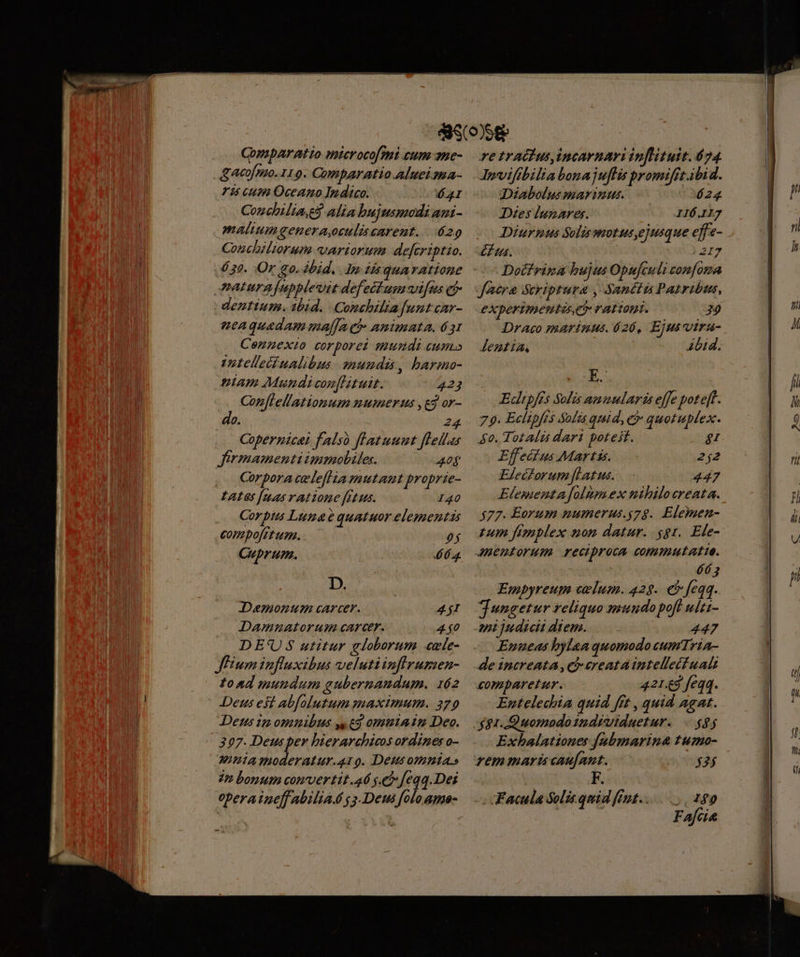 Comparatio microcosmi cum me-
gacosmo. 119. Comparatio Aluei ma-
ris cum Oceano Indico. 641
Conchilia, & alia hujusmodi ani-
malium genera, oculis carent. 629
Conchiliorum variorum descriptio.
630. Or 90. ibid. In iis qua ratione
natura supplevit defectum visus &
dentium. ibid. Conchilia sunt car-
nea quædam massa & animata. 631
Connexio corporei mundi cum
intellectualibus mundis, harmo-
niam Mundi constituit. 423
Constellationum numerus, & or-
do. 24
Copernicai falsò statuunt stellas
firmamenti immobiles. 408
Corpora cælestia mutant proprie-
tates suas ratione situs. 140
Corpus Lunæ è quatuor elementis
compositum. 95
Cuprum. 664
D.
Dæmonum carcer. 451
Damnatorum carcer. 450
DEUS utitur globorum cæle-
stium influxibus veluti instrumen-
to ad mundum gubernandum. 162
Deus est absolutum maximum. 379
Deus in omnibus, & omnia in Deo.
397. Deus per hierarchicos ordines o-
mnia moderatur. 419. Deus omnia
in bonum convertit. 465. & seqq. Dei
opera ineffabilia. 653. Deus solo amo-
re tractus, incarnari instituit. 674
Invisibilia bona justis promisit. ibid.
Diabolus marinus. 624
Dies lunares. 116.117
Diurnus Solis motus, ejusque effe-
ctus. 217
Doctrina hujus Opusculi consona
sacræ Scripturæ, Sanctis Patribus,
experimentis, & rationi. 39
Draco marinus. 626, Ejus viru-
lentia, ibid.
E.
Eclipsis Solis annularis esse potest.
79. Eclipsis Solis quid, & quotuplex.
80. Totalis dari potest. 81
Effectus Martis. 252
Electorum status. 447
Elementa solùm ex nihilo creata.
577. Eorum numerus. 578. Elemen-
tum simplex non datur. 581. Ele-
mentorum reciproca commutatio.
663
Empyreum cælum. 428. & seqq.
Jungetur reliquo mundo post ulti-
mi judicii diem. 447
Enneas hylæa quomodo cum Tria-
de increata, & creata intellectuali
comparetur. 421. & seqq.
Entelechia quid sit, quid agat.
581. Quomodo individuetur. 585
Exhalationes submarinæ tumo-
rem maris causant. 535
F.
Facula Solis quid sint. 189
Fascia